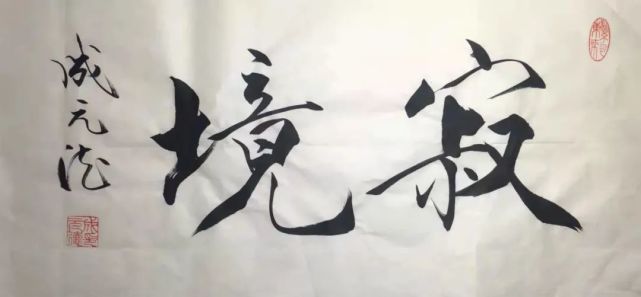 寂境
成元法